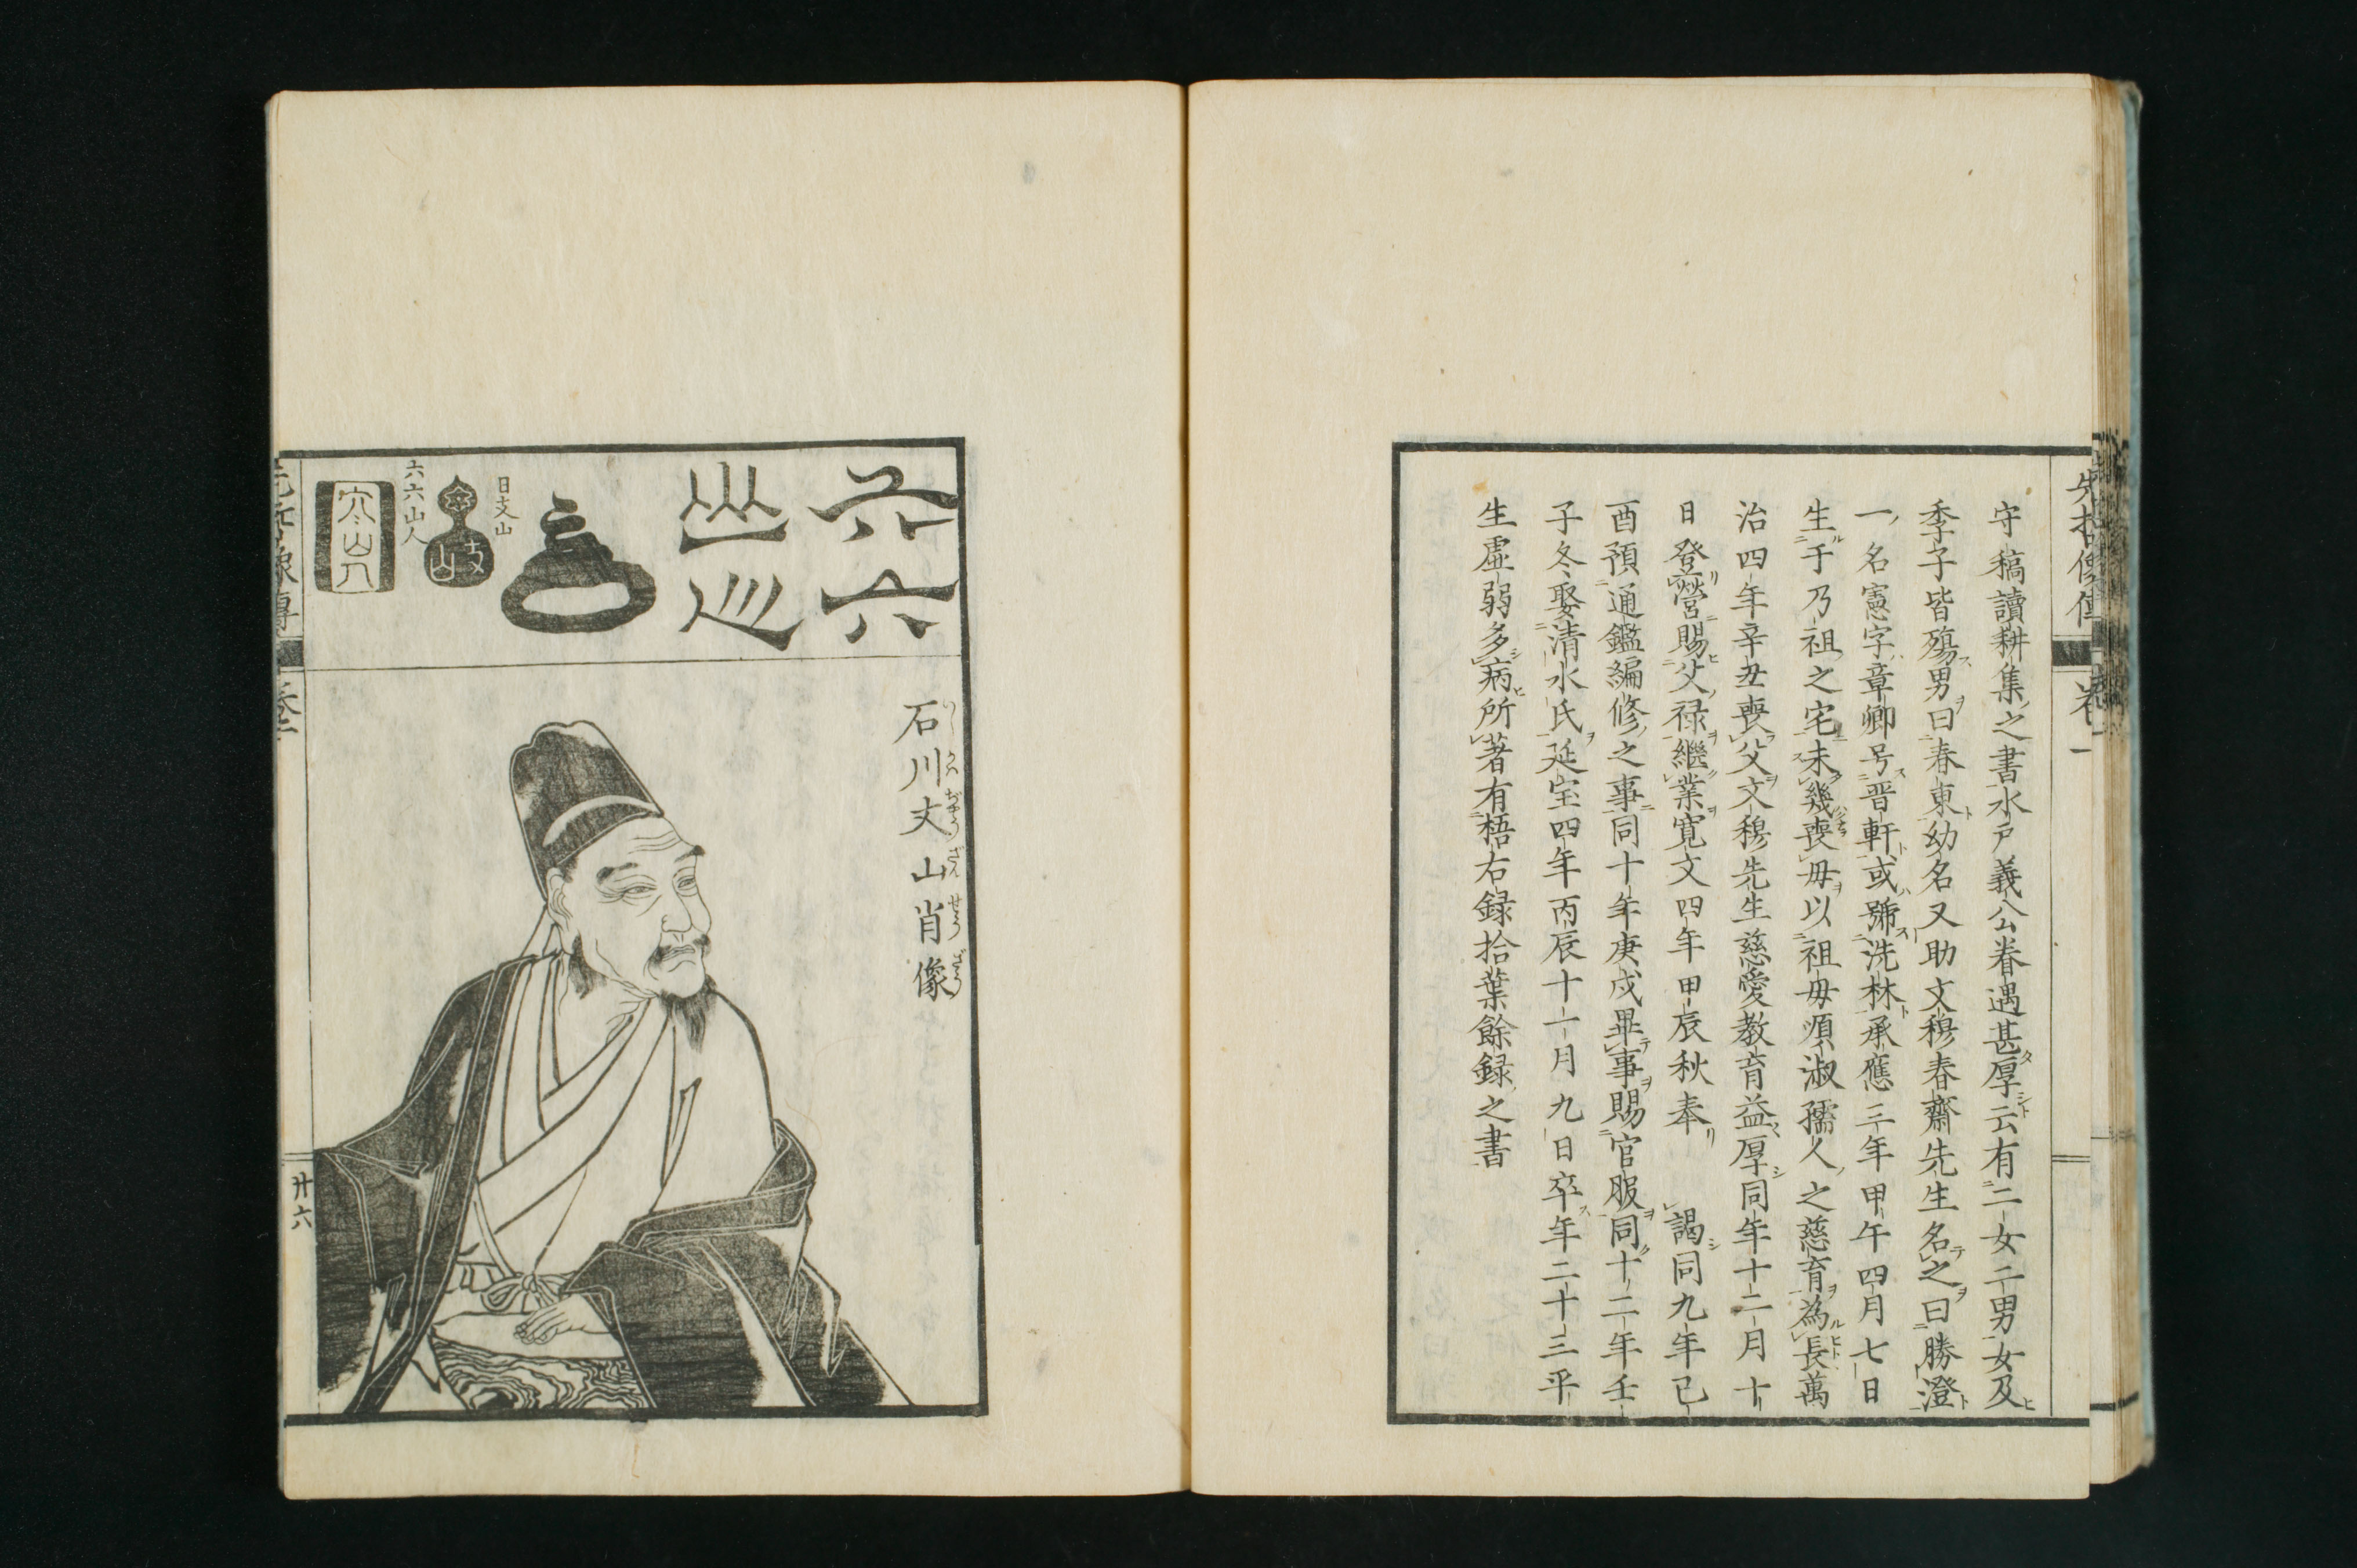 先哲像傳
卷一
守稿讀耕集之書水戸義公眷遇甚厚云有二女二男女及
季子皆殤男曰春東幼名又助文穆春齋先生名之曰勝澄
一名憲字章卿号晋軒或號洗林承應三年甲午四月七日
生于乃祖之宅未幾喪母以祖母順淑孺人之慈育為長萬
治四年辛丑喪父文穆先生慈愛教育益厚同年十二月十
日登營賜父禄継業寛文四年甲辰秋奉 謁同九年己
酉預通鑑編修之事同十年庚戌畢事賜官服同十二年壬
子冬娶清水氏延宝四年丙辰十一月九日卒年二十三平
生虚弱多病所著有梧右録拾葉餘録之書
六六
山人
日丈山
六六山人
石川丈山肖像
いしかはぢやうざんせうざう
先哲像傳
廿六